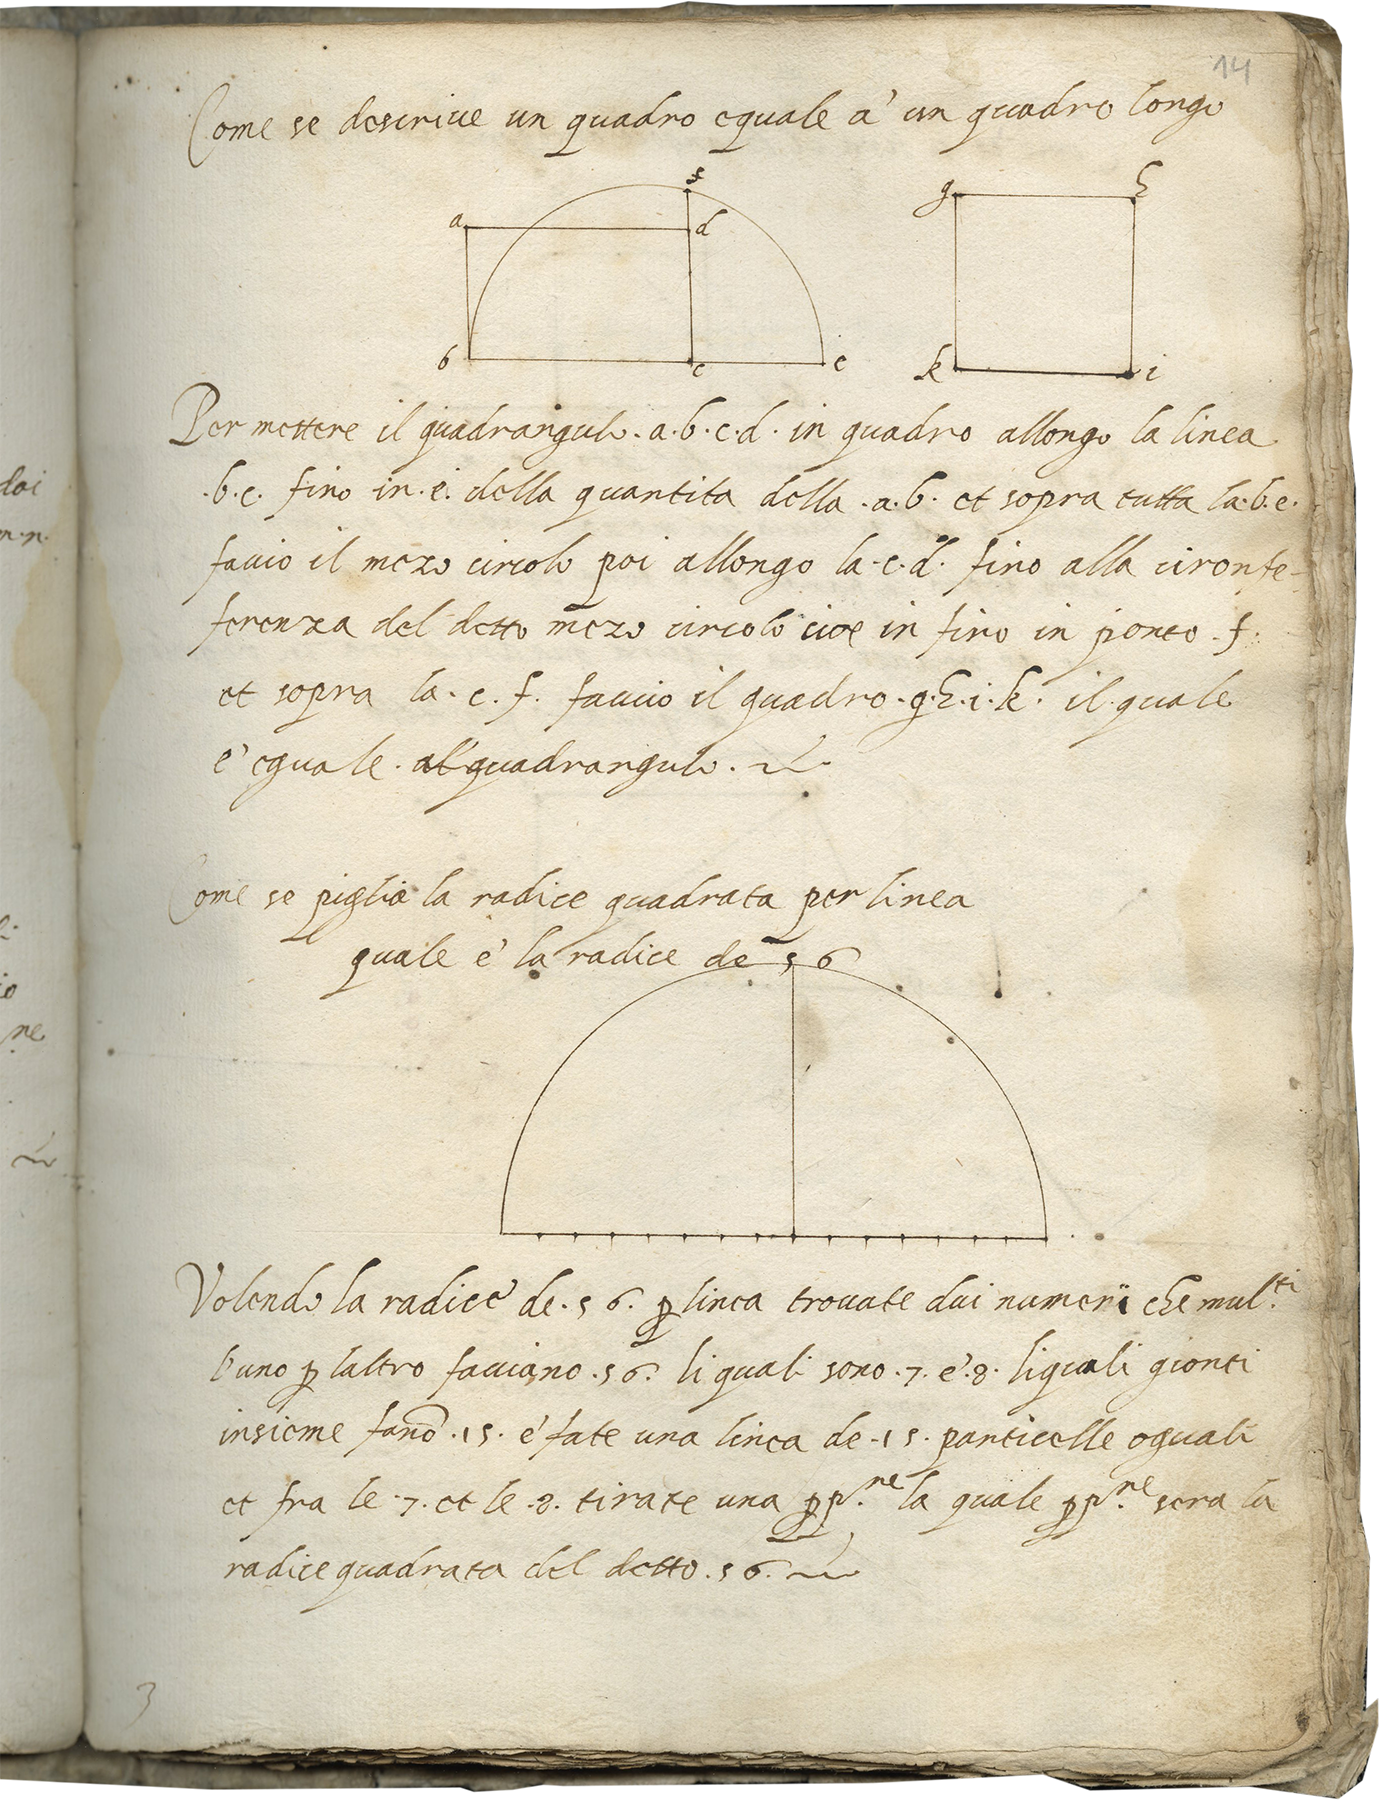 14
Come se descrive un quadro equale a' un quadro longo
f
a
d
g
h
b
c
e
k
i
Per mettere il quadrangulo .a.b.c.d. in quadro allongo la linea
.b.c. fino in .e. della quantita della .a.b. et sopra tutta la .b.e.
faccio il mezo circolo poi allongo la .c.d. fino alla
ferenza del detto mezo circolo cioe in fino in ponto .f.
et sopra la .c.f. faccio il quadro .g.h.i.k. il quale
e' equale al quadrangulo.
Come se piglia la radice quadrata per linea
quale e' la radice de 56
Volendo la radice de .56. p linea trovate dui numeri che mul.ti
l'uno p laltro facciano .56. li quali sono .7. e' .8. li quali gionti
insieme fano .15. e' fate una linea de .15. particelle equali
et fra le .7. et le .8. tirate una pp.ne la quale pp.ne sera la
radice quadrata del detto .56.
3
dai
.n.n.
ne